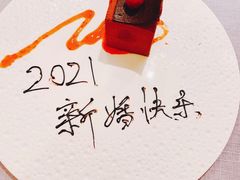 2021
新婚快乐